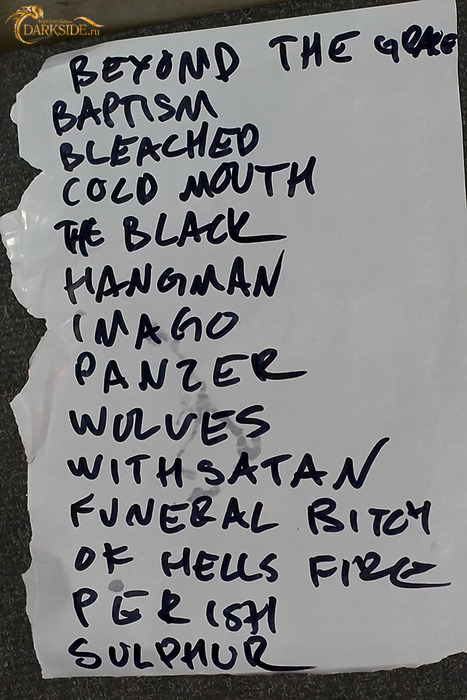 DARKSIDE.ru
BEYOND THE GRAVE
BAPTISM
BLEACHED
COLD MOUTH
THE BLACK
HANGMAN
IMAGO
PANZER
WOLVES
WITH SATAN
FUNERAL BITCH
OF HELLS FIRE
PERISH
SULPHUR